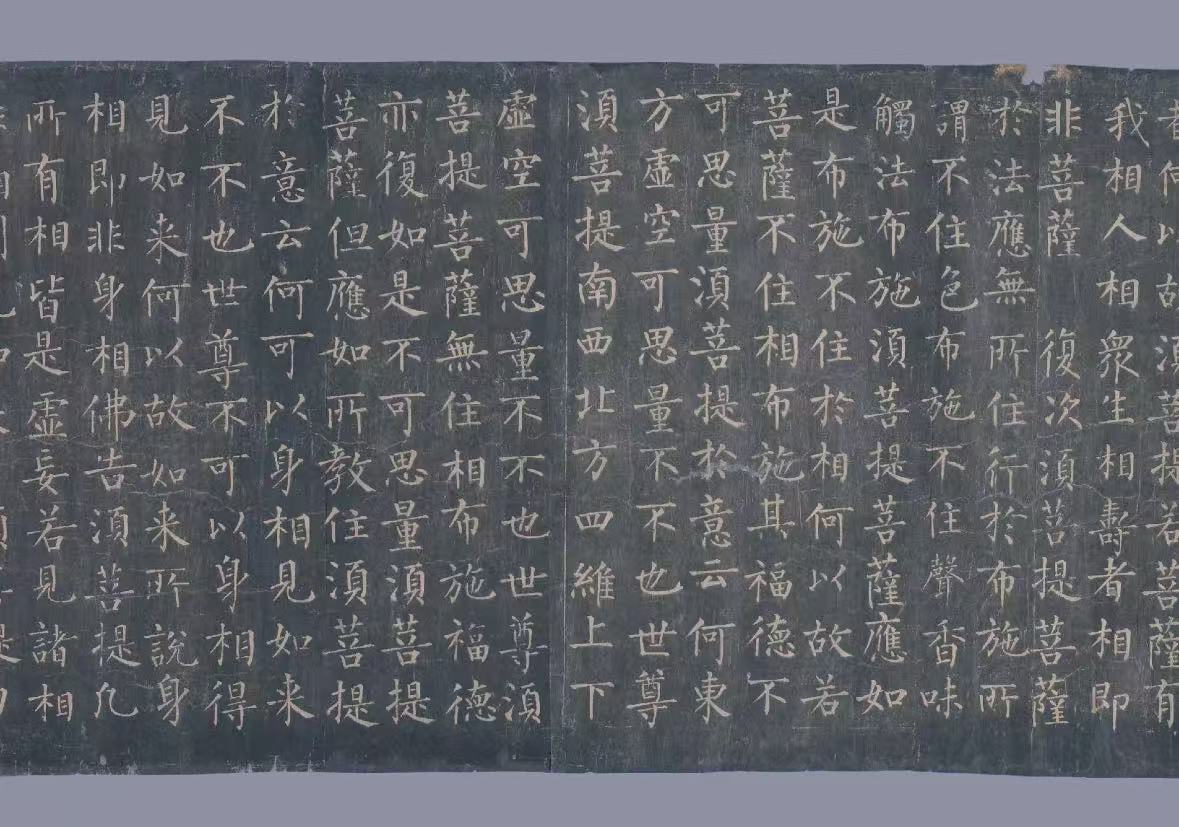 者何以故須菩提若菩薩有
我相人相衆生相壽者相即
非菩薩 復次須菩提菩薩
於法應無所住行於布施所
謂不住色布施不住聲香味
觸法布施須菩提菩薩應如
是布施不住於相何以故若
菩薩不住相布施其福德不
可思量須菩提於意云何東
方虛空可思量不不也世尊
須菩提南西北方四維上下
虛空可思量不不也世尊須
菩提菩薩無住相布施福德
亦復如是不可思量須菩提
菩薩但應如所教住須菩提
於意云何可以身相見如来
不不也世尊不可以身相得
見如来何以故如来所說身
相即非身相佛告須菩提凡
所有相皆是虛妄若見諸相